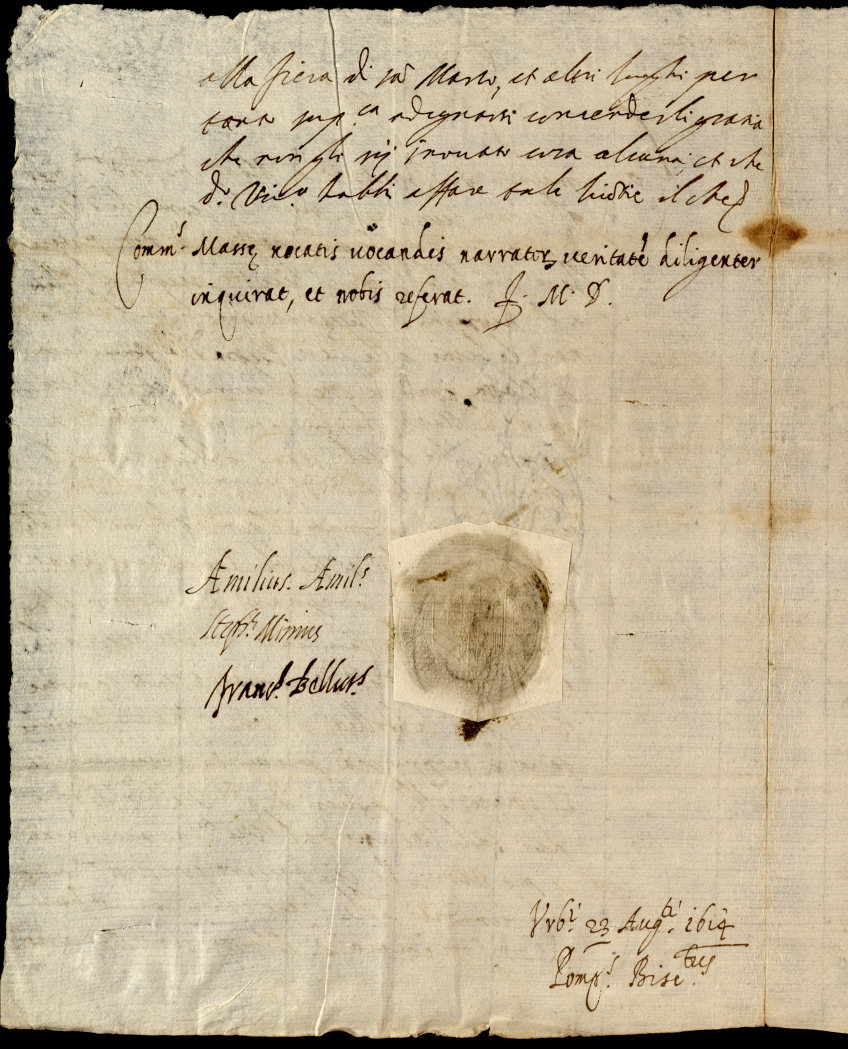 alla fiera di sã Marco, et altri luoghi per
tanto sup.ca a degnarsi concederli gratia
che non gli sij inovato cosa alcuna, et che
d.º Vic.º habbi affare tal
Comm.s Massę vocatis vocandis narrator, veritatē diligenter
inquirat, et nobis referat. M. D.
Amilius. Amil.s
Steph.s
Franc.s Bellus.s
Vrbi 23 Aug.ti 1614
Pomp.s